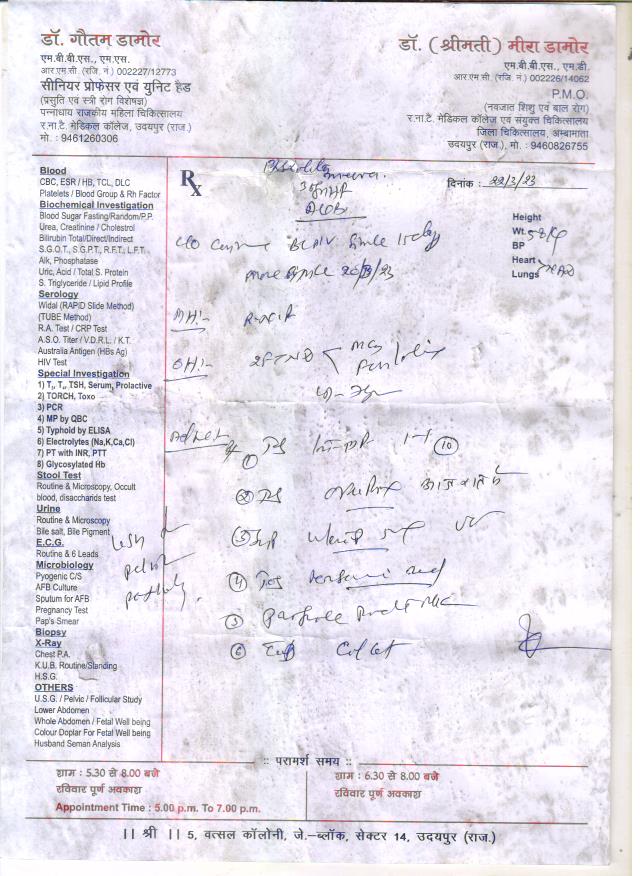 डॉ. गौतम डामोर
एम.बी.बी.एस., एम.एस.
आर.एम.सी. (रजि. नं.) 002227/12773
सीनियर प्रोफेसर एवं युनिट हैड
(प्रसुति एवं स्त्री रोग विशेषज्ञ)
पन्नाधाय राजकीय महिला चिकित्सालय
र.ना.टै. मेडिकल कॉलेज, उदयपुर (राज.)
मो. : 9461260306
डॉ. (श्रीमती) मीरा डामोर
एम.बी.बी.एस., एम.डी.
आर.एम.सी. (रजि. नं.) 002226/14062
P.M.O.
(नवजात शिशु एवं बाल रोग)
र.ना.टै. मेडिकल कॉलेज एवं संयुक्त चिकित्सालय
जिला चिकित्सालय, अम्बामाता
उदयपुर (राज.), मो. : 9460826755
Blood
CBC, ESR / HB, TCL, DLC
Platelets / Blood Group & Rh Factor
Biochemical Investigation
Blood Sugar Fasting/Random/P.P.
Urea, Creatinine / Cholestrol
Bilirubin Total/Direct/Indirect
S.G.O.T., S.G.P.T., R.F.T., L.F.T.
Alk, Phosphatase
Uric, Acid / Total S. Protein
S. Triglyceride / Lipid Profile
Serology
Widal (RAPID Slide Method)
(TUBE Method)
R.A. Test / CRP Test
A.S.O. Titer / V.D.R.L. / K.T.
Australia Antigen (HBs Ag)
HIV Test
Special Investigation
1) T₃, T₄, TSH, Serum, Prolactive
2) TORCH, Toxo
3) PCR
4) MP by QBC
5) Typhoid by ELISA
6) Electrolytes (Na,K,Ca,Cl)
7) PT with INR, PTT
8) Glycosylated Hb
Stool Test
Routine & Microscopy, Occult
blood, disaccharids test
Urine
Routine & Microscopy
Bile salt, Bile Pigment
E.C.G.
Routine & 6 Leads
Microbiology
Pyogenic C/S
AFB Culture
Sputum for AFB
Pregnancy Test
Pap's Smear
Biopsy
X-Ray
Chest P.A.
K.U.B. Routine/Standing
H.S.G.
OTHERS
U.S.G. / Pelvic / Follicular Study
Lower Abdomen
Whole Abdomen / Fetal Well being
Colour Doplar For Fetal Well being
Husband Seman Analysis
Rx
दिनांक : 22/3/23
Height
Wt. 58
BP
Heart
Lungs
c/o BLPIV since 15 day
more since
MH:-
OH:- 2FTND
Advice
① 1-1 ⑩
②
③
④
⑤
⑥
:: परामर्श समय ::
शाम : 5.30 से 8.00 बजे
रविवार पूर्ण अवकाश
Appointment Time : 5.00 p.m. To 7.00 p.m.
शाम : 6.30 से 8.00 बजे
रविवार पूर्ण अवकाश
|| श्री || 5, वत्सल कॉलोनी, जे.-ब्लॉक, सेक्टर 14, उदयपुर (राज.)